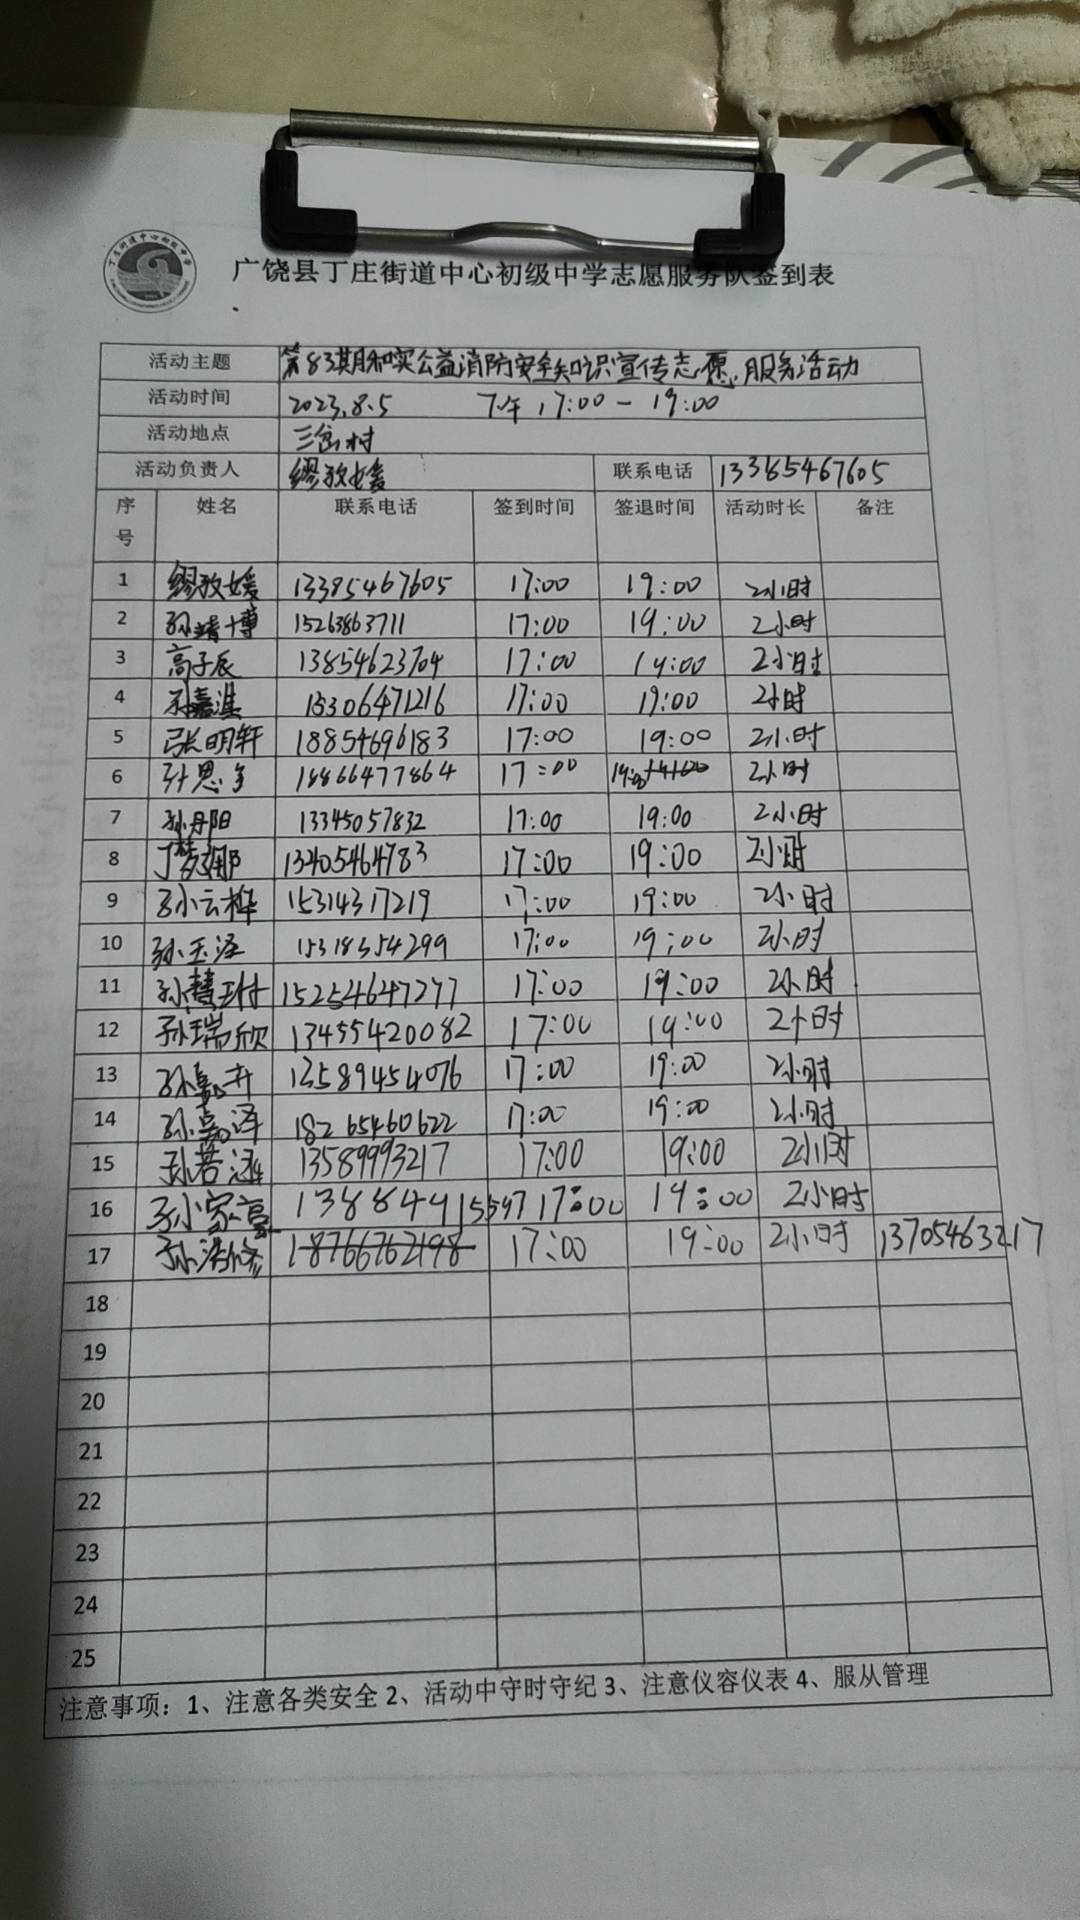 广饶县丁庄街道中心初级中学志愿服务队签到表
活动主题 第83期和实公益消防安全知识宣传志愿服务活动
活动时间 2023.8.5 下午 17:00-19:00
活动地点 三岔村
活动负责人 缪孜媛 联系电话 13385467605
序号 姓名 联系电话 签到时间 签退时间 活动时长 备注
1 缪孜媛 13385467605 17:00 19:00 2小时
2 孙靖博 15263863711 17:00 19:00 2小时
3 高子辰 13854623704 17:00 19:00 2小时
4 孙嘉淇 15306471216 17:00 19:00 2小时
5 张明轩 18854696183 17:00 19:00 2小时
6 孙思 18866477864 17:00 19:00 2小时
7 孙丹阳 13345057832 17:00 19:00 2小时
8 丁梦娜 13405464783 17:00 19:00 2小时
9 孙云桦 15314317219 17:00 19:00 2小时
10 孙玉泽 15318354299 17:00 19:00 2小时
11 孙慧 15254647277 17:00 19:00 2小时
12 孙瑞欣 13455420082 17:00 19:00 2小时
13 孙 13589454076 17:00 19:00 2小时
14 孙嘉泽 18265460622 17:00 19:00 2小时
15 孙若涵 13589993217 17:00 19:00 2小时
16 孙家豪 17:00 19:00 2小时
17 孙浩修 18766762198 17:00 19:00 2小时 13705463217
18
19
20
21
22
23
24
25
注意事项：1、注意各类安全 2、活动中守时守纪 3、注意仪容仪表 4、服从管理